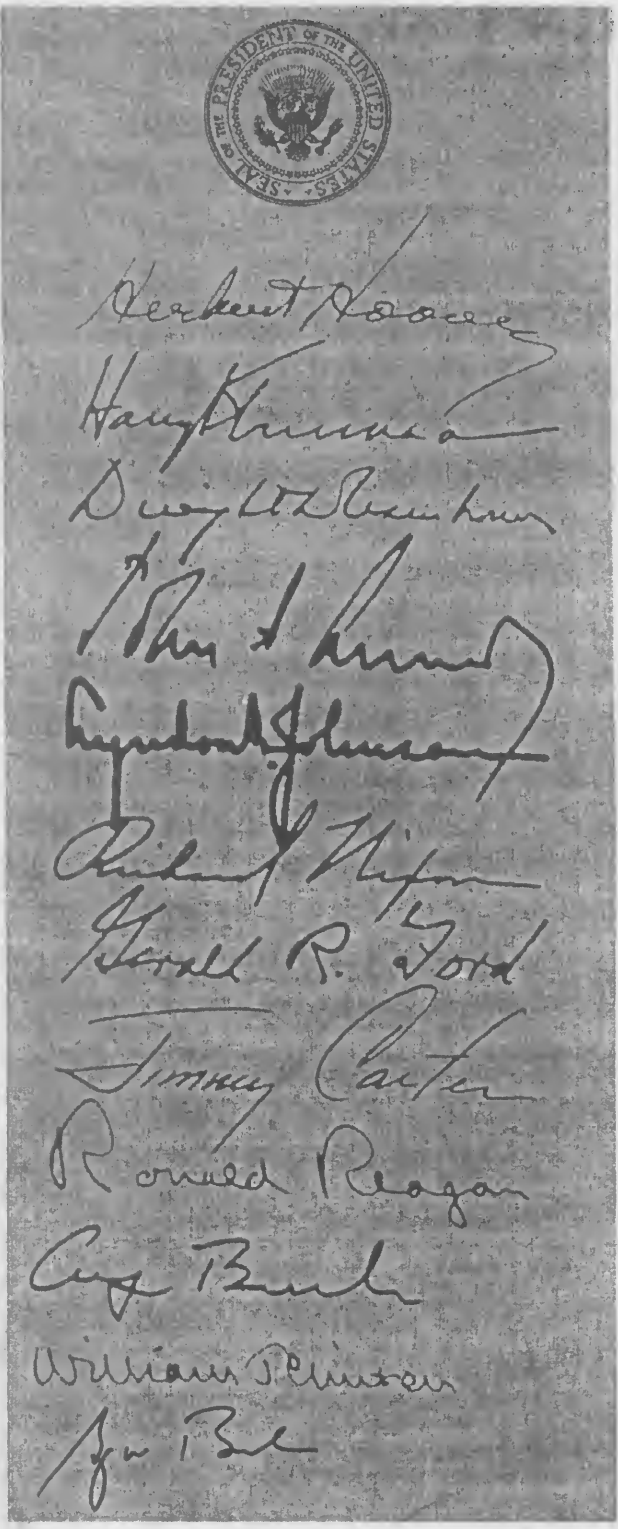 SEAL OF THE PRESIDENT OF THE UNITED STATES
Herbert Hoover
Harry Truman
Dwight D Eisenhower
John F Kennedy
Lyndon B. Johnson
Richard Nixon
Gerald R. Ford
Jimmy Carter
Ronald Reagan
George Bush
William J Clinton
George W Bush